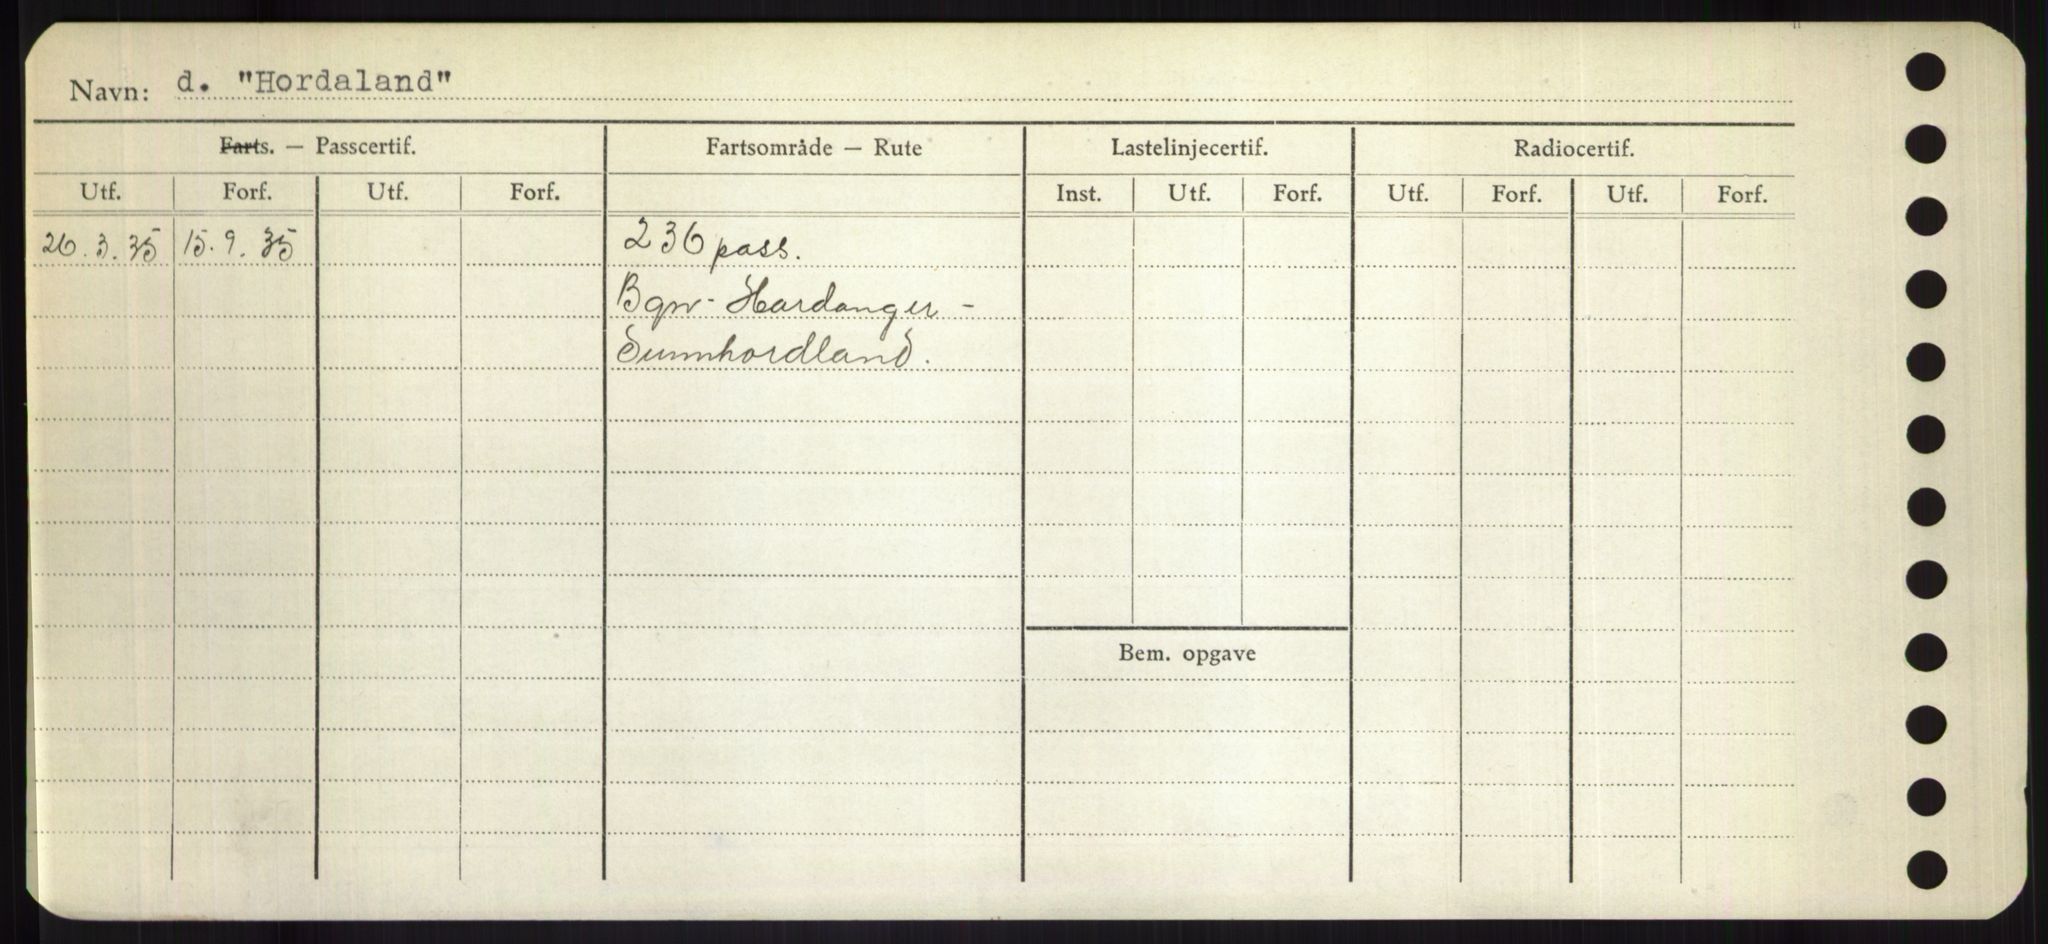 Navn: d. "Hordaland"
Farts. — Passcertif. Fartsområde — Rute Lastelinjecertif. Radiocertif.
Utf. Forf. Utf. Forf. Inst. Utf. Forf. Utf. Forf. Utf. Forf.
26.3.35 15.9.35 236 pass.
Hardanger -
Sunnhordland.
Bem. opgave